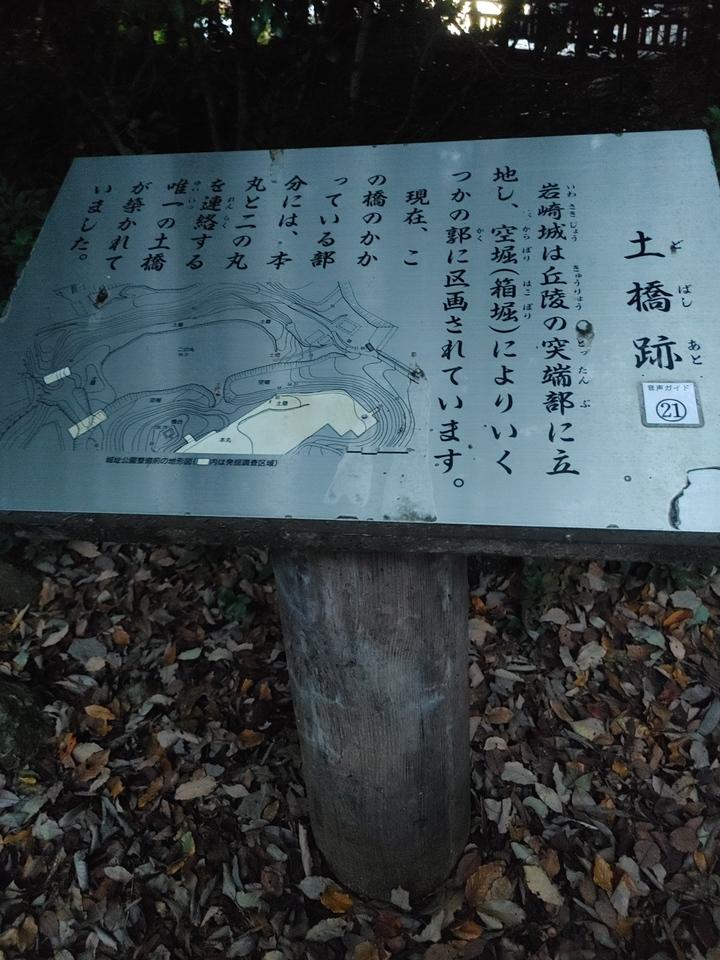 土橋跡
どばしあと
音声ガイド
21
岩崎城は丘陵の突端部に立
地し、空堀(箱堀)によりいく
つかの郭に区画されています。
現在、こ
の橋のかか
っている部
分には、本
丸と二の丸
を連絡する
唯一の土橋
が築かれて
いました。
城址公園整備前の地形図(内は発掘調査区域)
二の丸
土塁
空堀
空堀
土塁
本丸